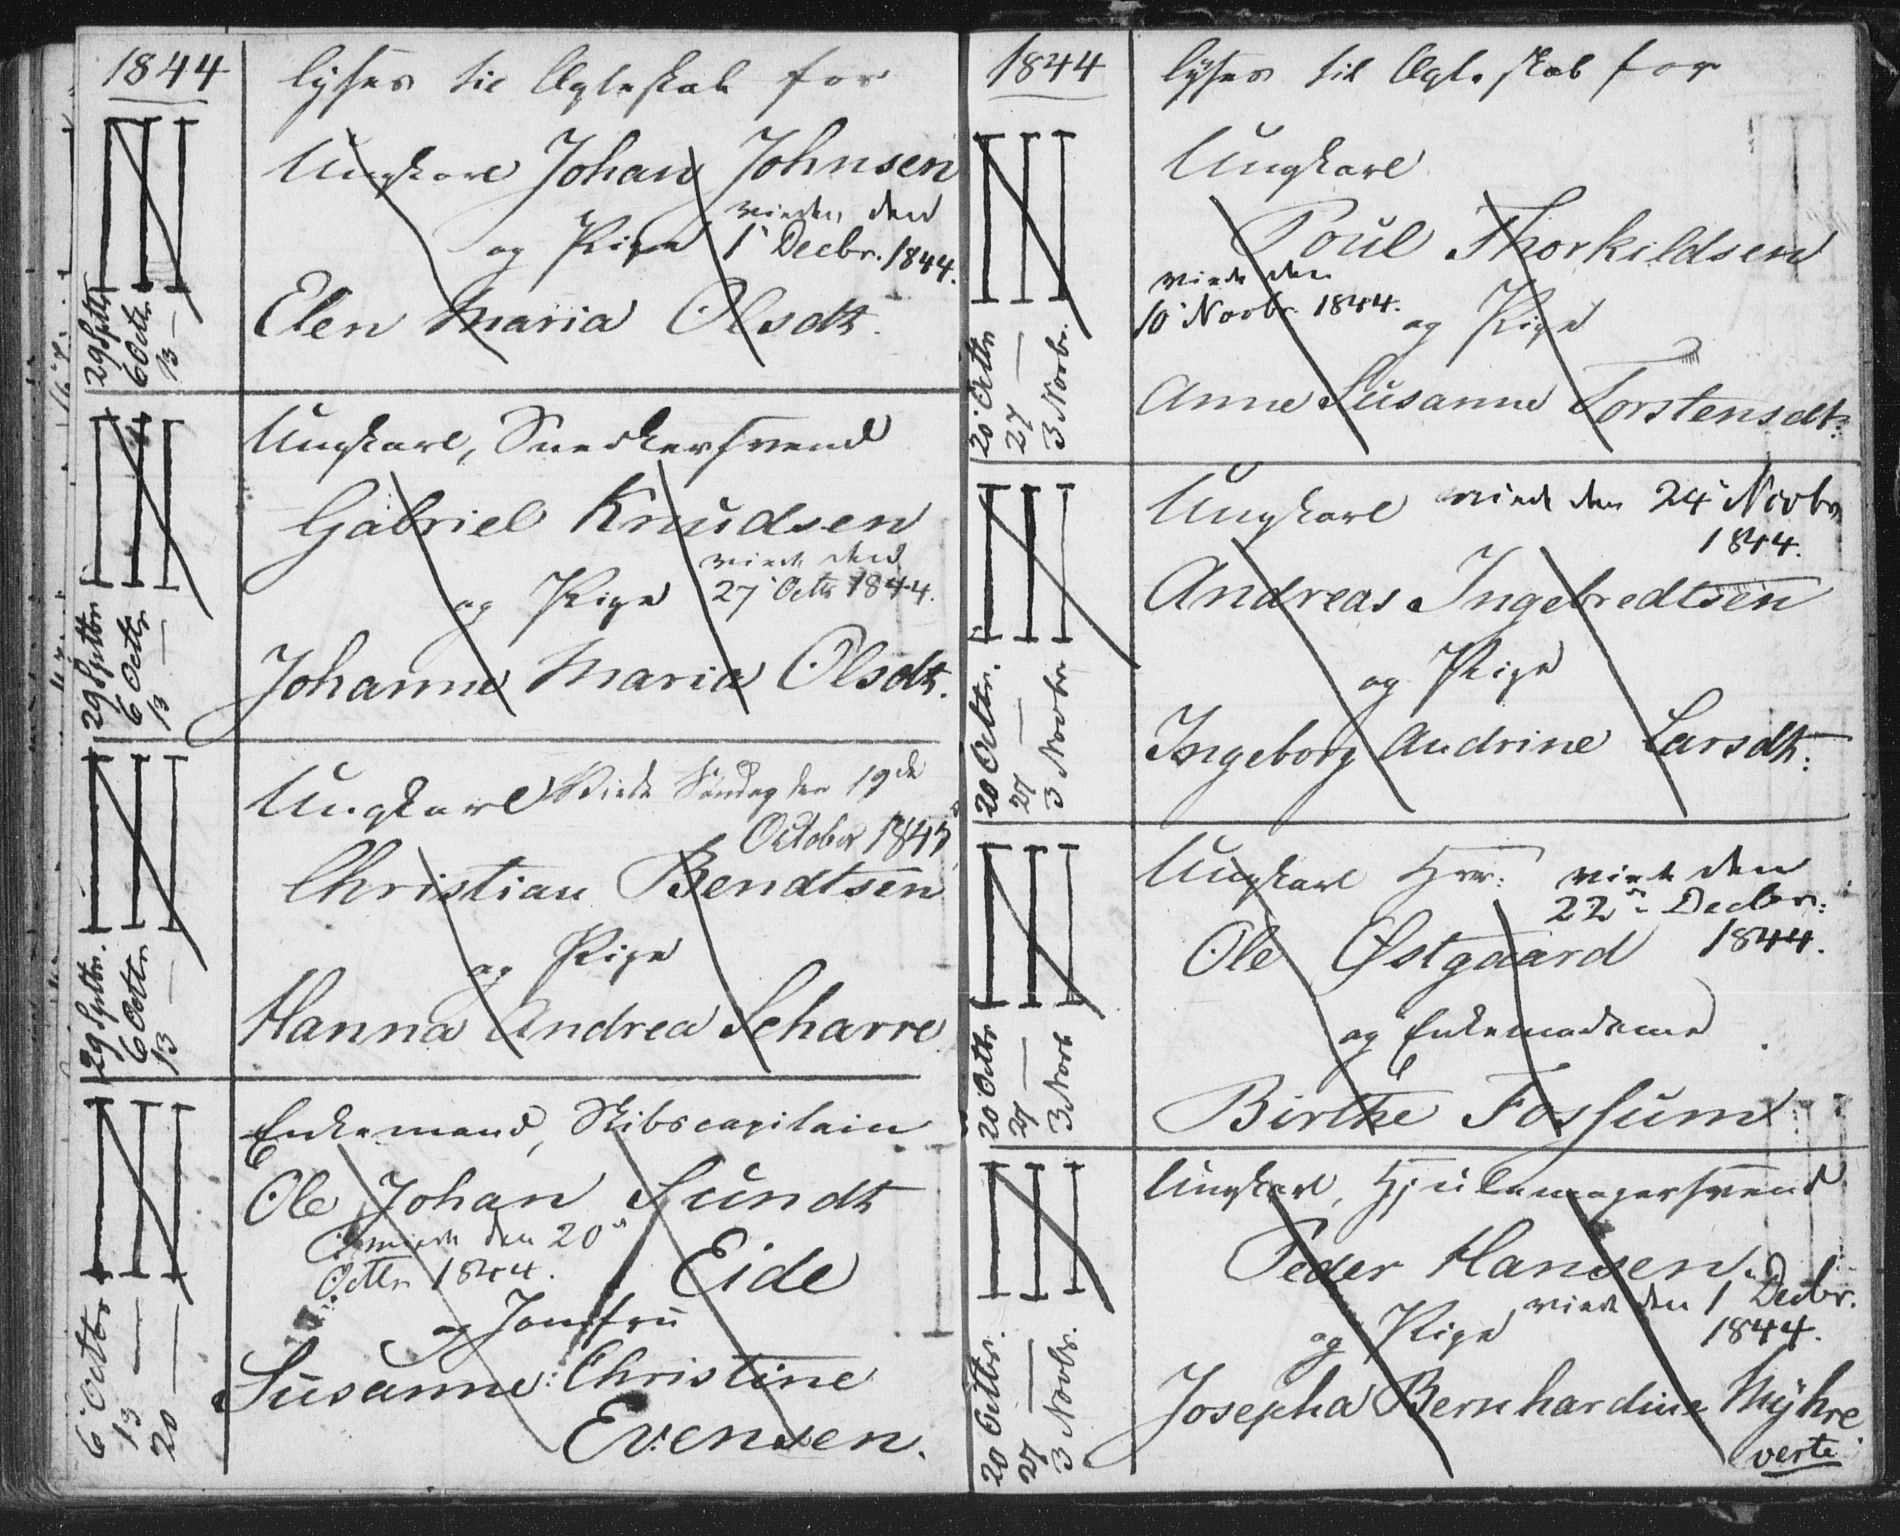 1844
lyses til Ægteskab for
Ungkarl Johan Johnsen
viede den
og Pige 1' Decbr. 1844.
Elen Maria Olsdt.
29 Septbr
6 Octbr
13 —
Ungkarl, Snedkersvend
Gabriel Knudsen
viede den
og Pige 27' Octbr 1844.
Johanne Maria Olsdt.
29 Septbr
6 Octbr
13 —
Ungkarl Viede Söndag den 19de
October 1845
Christian Bendtsen
og Pige
Hanna Andrea Scharre
29 Septbr.
6 Octbr
13 —
Enkemand, Skibscapitain
Ole Johan Sundt
viede den 20'
Octbr 1844. Eide
og Jomfru
Susanne Christine
Evensen.
6' Octbr
13 —
20 —
1844
lyses til Ægteskab for
Ungkarl
Poul Thorkildsen
viede den
10' Novbr 1844. og Pige
Anne Susanne Torstensdt:
20' Octbr
27 —
3 Novbr.
Ungkarl viede den 24' Novbr
1844.
Andreas Ingebredtsen
og Pige
Ingeborg Andrine Larsdt:
20 Octbr.
27 —
3 Novbr
Ungkarl Hrr: viede den
22' Decbr:
Ole Østgaard 1844.
og Enkemadame
Birthe Fossum
20 Octbr
27 —
3 Novb
Ungkarl, Hjulemagersvend
Peder Hansen
og Pige viede den 1 Decbr.
1844.
Josepha Bernhardine Mÿhre
20 Octbr.
27 —
3 Novbr.
verte